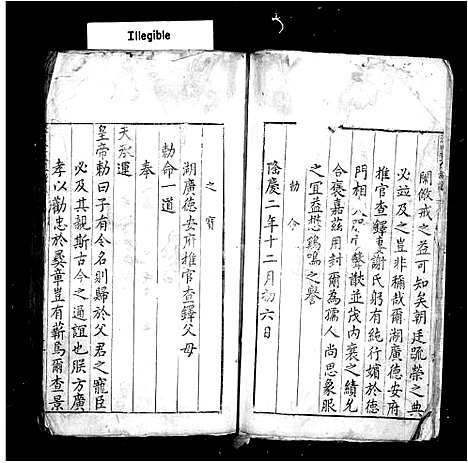 Illegible
閫儆戒之益可知矣朝廷疏榮之典
必並及之豈非稱哉爾湖廣德安府
推官查鐸妻謝氏躬有純行媚於德
門相
繁猷並茂內襄之績允
合褒嘉茲用封爾為孺人尚思象服
之宜益懋鷄鳴之譽
勅命
隆慶二年十二月初六日
之寶
湖廣德安府推官查鐸父母
勅命一道
奉
天承運
皇帝勅曰子有令名則歸於父君之寵臣
必及其親斯古今之通誼也朕方廣
孝以勸忠於彝章豈有蘄焉爾查景